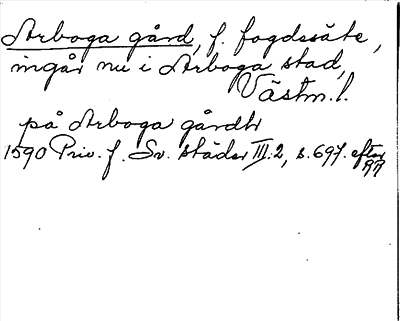 Arboga gård, f. fogdesäte,
ingår nu i Arboga stad,
Västm.l.
på Arboga gårdh
1590 Priv. f. Sv. städer III:2, s. 697. efter